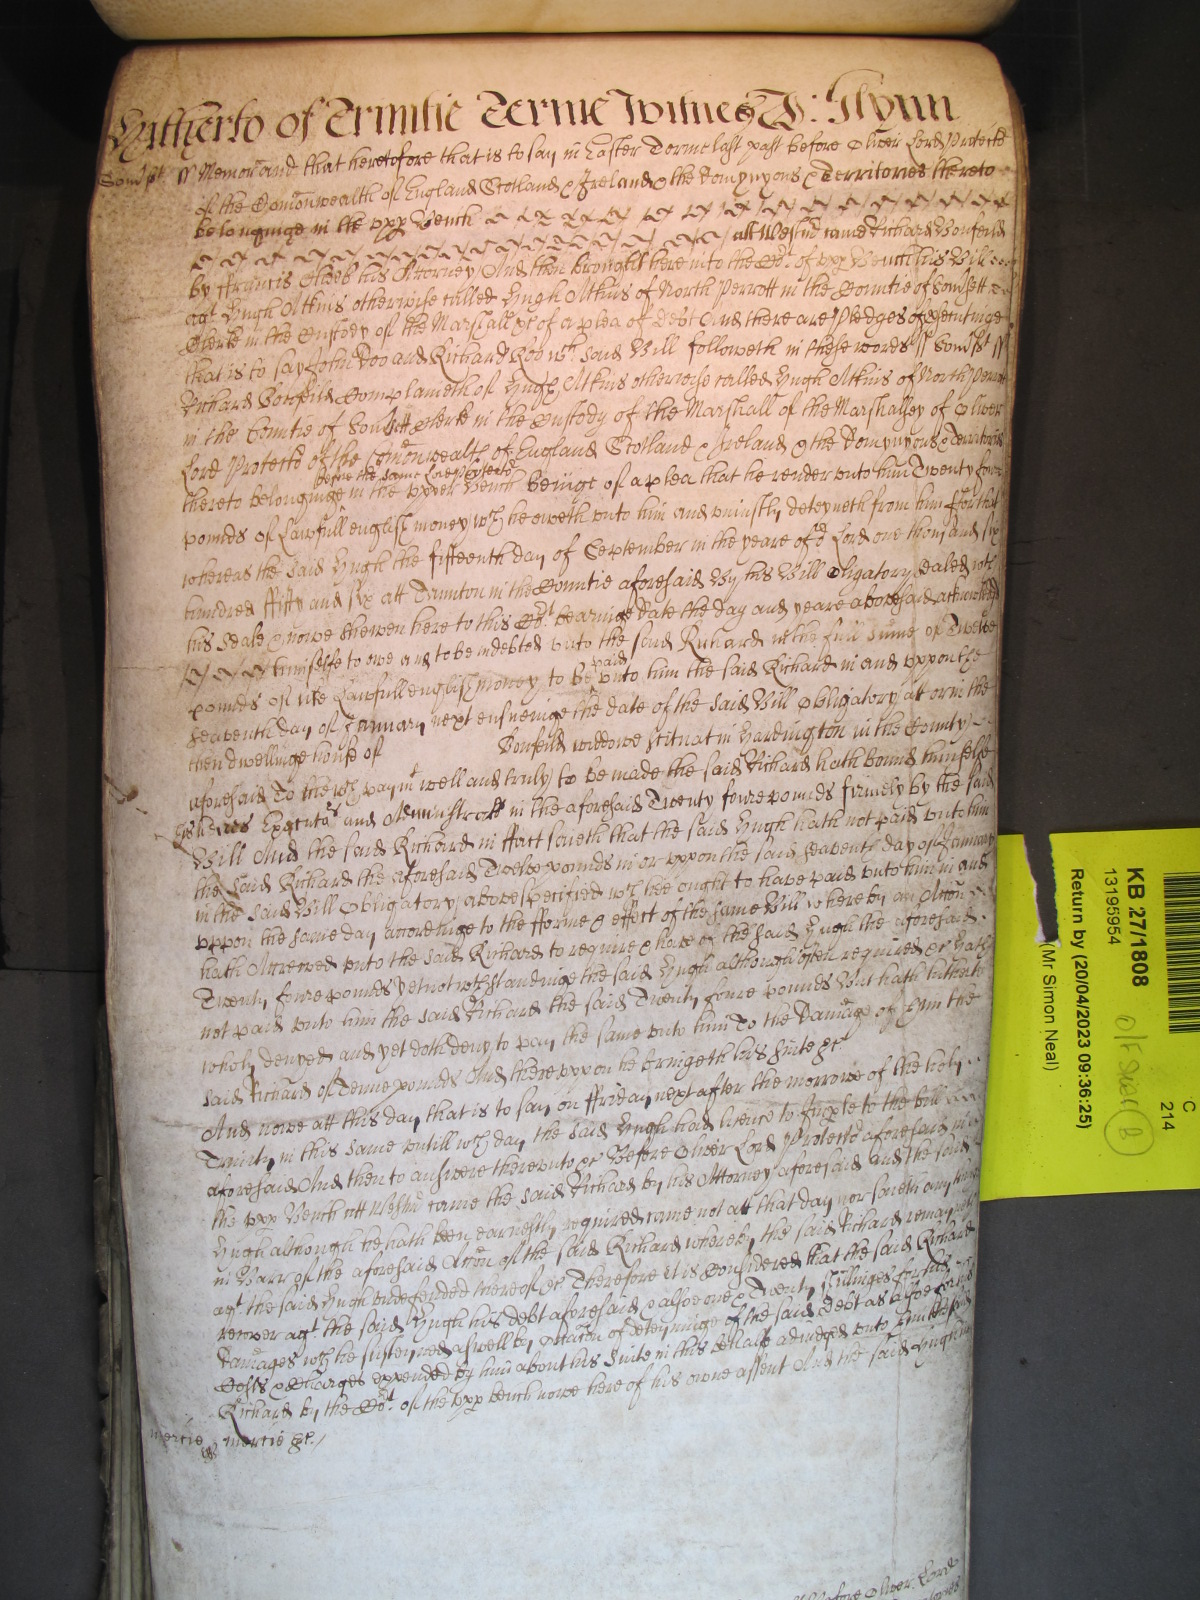 Hitherto of Trinitie Terme Witnes J: Glynn
Somst ss Memorand that heretofore that is to say in Easter Terme last past before Oliver Lord Protector
of the Comonwealth of England Scotland & Ireland & the domynyons & Territories thereto
belonginge in the upp Bench
att Westm came Richard Bonfeild
by ffrancis his Attorney And then brought here into the Cot of upp Bench his Bill
agt Hugh Atkins otherwise called Hugh Atkins of North Perrott in the Countie of Somsett
Clerke in the Custody of the Marshall &c of a plea of Debt And there are Pledges of
that is to say John Doo and Richard Roo wch said Bill followeth in these words ss Somst ss
Richard Bonfeild Complaineth of Hugh Atkins otherwise called Hugh Atkins of North Perrott
in the Countie of Somsett Clerke in the Custody of the Marshall of the Marshalsey of Oliver
Lord Protector of the Comonwealth of England Scotland & Ireland & the domynyons & Territories
before the same Lord Protector
thereto belonginge in the upper Bench beinge of a plea that he render unto him Twenty foure
pounds of Lawfull english money wch he oweth unto him and uniustly deteyneth from him for that
whereas the said Hugh the fifteenth day of September in the yeare of or Lord one thousand six
hundred ffifty and six att Taunton in the Countie aforesaid By his Bill obligatory sealed wth
his seale & nowe shewen here to this Cot bearinge date the day and yeare abovesaid acknowledged
himselfe to owe and to be indebted unto the said Richard in the full sume of Twelve
paid
pounds of like Lawfull english money to be unto him the said Richard in and uppon the
seaventh day of January next ensueinge the date of the said Bill obligatory att or in the
then dwellinge house of Bonfeild widdowe scituat in Hardington in the County
aforesaid To the wch paymt well and truly to be made the said Richard hath bound himselfe
his heires Executors and Administrators in the aforesaid Twenty foure pounds firmely by the said
Bill And the said Richard in ffact saieth that the said Hugh hath not paid unto him
the said Richard the aforesaid Twelve pounds in or uppon the said seaventh day of January
in the said Bill obligatory above specified wch he ought to have paid unto him in and
uppon the same day accordinge to the fforme & effect of the same Bill whereby an Accon
hath Accrewed unto the said Richard to require & have of the said Hugh the aforesaid
Twenty foure pounds yet notwthstandinge the said Hugh although often required &c hath
not paid unto him the said Richard the said Twenty foure pounds But hath hitherto
wholy denyed and yet doth deny to pay the same unto him To the Damage of him the
said Richard of Tenne pounds And thereuppon he bringeth his suite &c
And nowe att this day that is to say on ffriday next after the morrowe of the holy
Trinity in this same untill wch day the said Hugh had licence to Imple to the bill
aforesaid And then to answere thereunto &c Before Oliver Lord Protector aforesaid in
the upp Bench att Westm came the said Richard by his Attorney aforesaid And the said
Hugh although he hath been earnestly required came not att that day nor saieth any thinge
in Barr of the aforesaid Accon of the said Richard whereby the said Richard remayneth
agt the said Hugh undefended thereof &c Therefore it is considered that the said Richard
recover agt the said Hugh his debt aforesaid & alsoe one & Twenty shillinges for his
damages wch he susteyned aswell by occasion of deteyninge of the said debt as alsoe for his
Costs & Charges expended by him about his suite in this behalfe adiudged unto him the said
Richard by the Cot of the upp bench nowe here of his owne assent And the said Hugh in
mercie mercie &c
before Oliver Lord
KB 27/1808
13195954
Return by (20/04/2023 09:36:25)
(Mr Simon Neal)
C
214